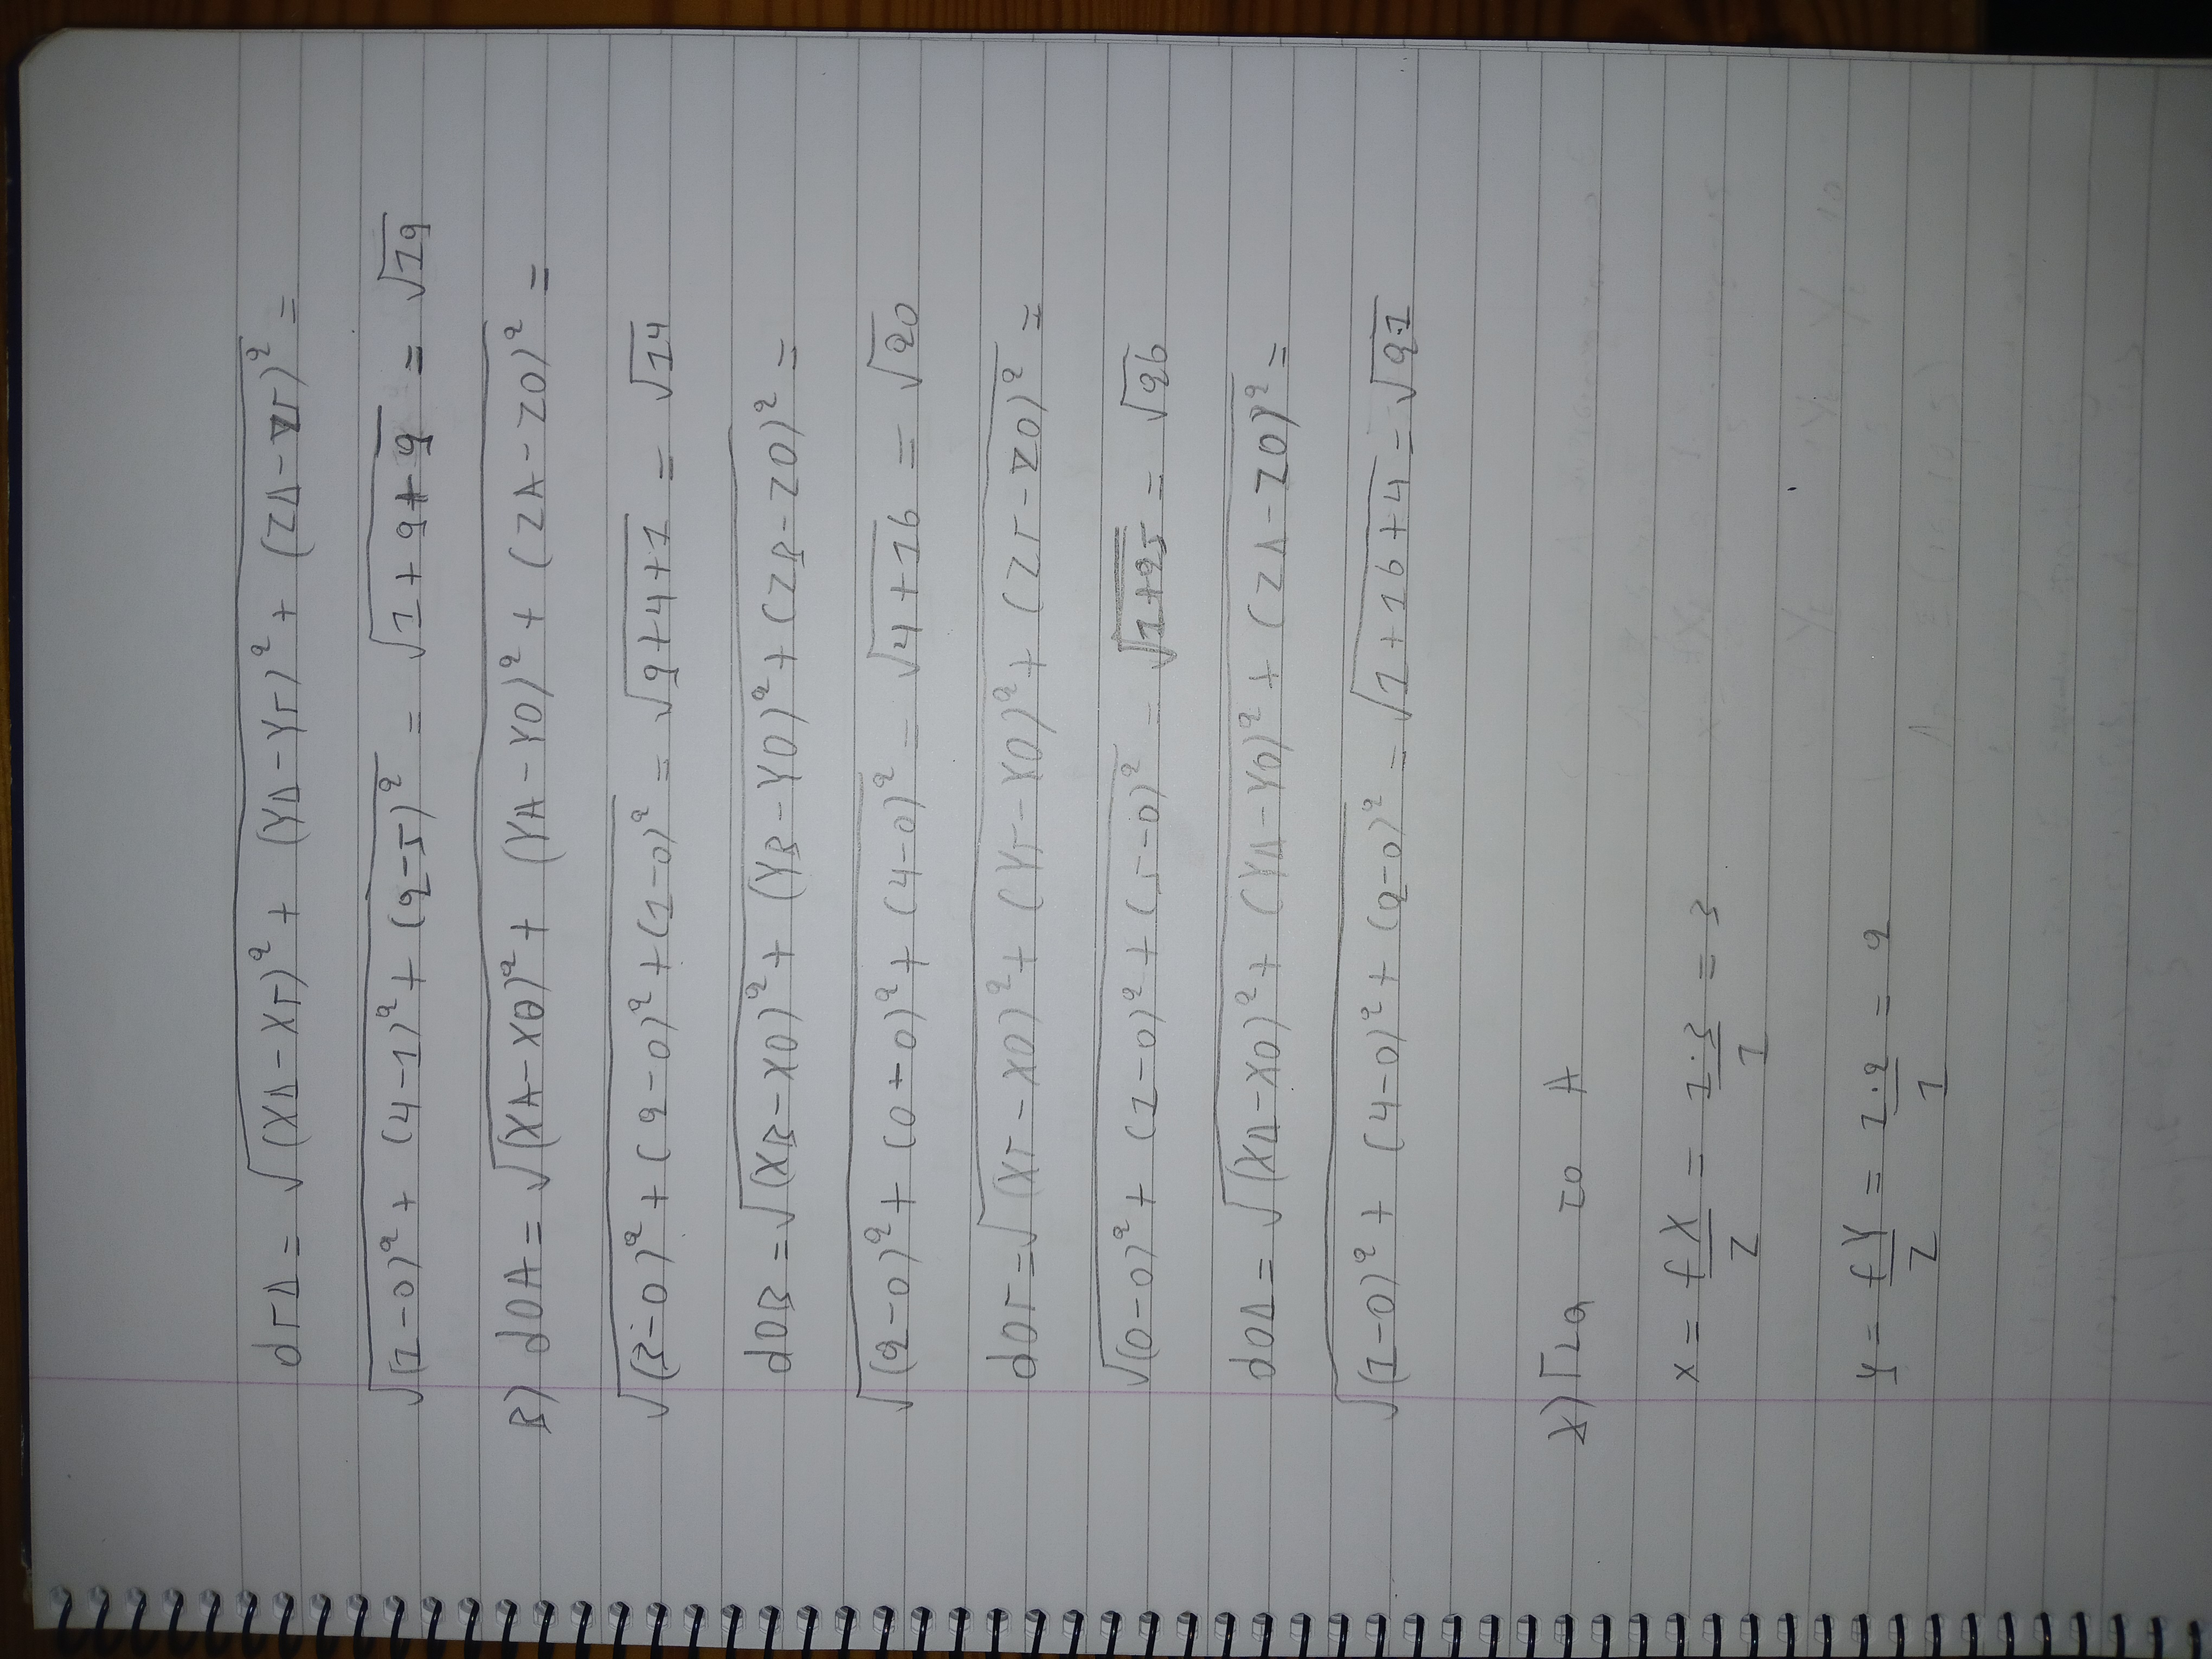 dΓΔ = √(XΔ-XΓ)² + (YΔ-YΓ)² + (ZΔ-ZΓ)² =
√(1-0)² + (4-1)² + (2-5)² = √1+9+9 = √19
B) dOA = √(XA-XO)² + (YA-YO)² + (ZA-ZO)² =
√(3-0)² + (2-0)² + (1-0)² = √9+4+1 = √14
dOB = √(XB-XO)² + (YB-YO)² + (ZB-ZO)² =
√(2-0)² + (0-0)² + (4-0)² = √4+16 = √20
dOΓ = √(XΓ-XO)² + (YΓ-YO)² + (ZΓ-ZO)² =
√(0-0)² + (1-0)² + (5-0)² = √1+25 = √26
dOΔ = √(XΔ-XO)² + (YΔ-YO)² + (ZΔ-ZO)² =
√(1-0)² + (4-0)² + (2-0)² = √1+16+4 = √21
γ) Για το A
x = fX/Z = 1·3/1 = 3
y = fY/Z = 1·2/1 = 2